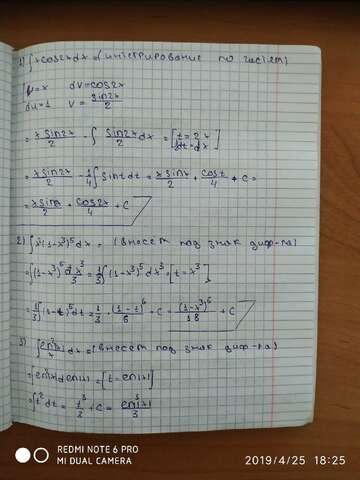 1) ∫xcos2xdx=(интегрирование по частям)
u=x dv=cos2x
du=1 v=sin2x/2
= xsin2x/2 - ∫sin2x/2 dx = [t=2x
dt=dx]
= xsin2x/2 - 1/4∫sint dt = xsin2x/2 + cost/4 + c =
= + cos2x/4 + C
2) ∫x²(1-x³)⁵dx = (внесем под знак диф-ла)
=∫(1-x³)⁵ dx³/3 = 1/3∫(1-x³)⁵dx³ = [t=x³]
= 1/3∫(1-t)⁵dt = 1/3 · (1-t)⁶/6 + C = (1-x³)⁶/18 + C
3) dx=(внесем под знак диф-ла)
= [t=ln|x|]
=∫t²dt = t³/3 + C = ln³|x|/3
REDMI NOTE 6 PRO
MI DUAL CAMERA
2019/4/25 18:25